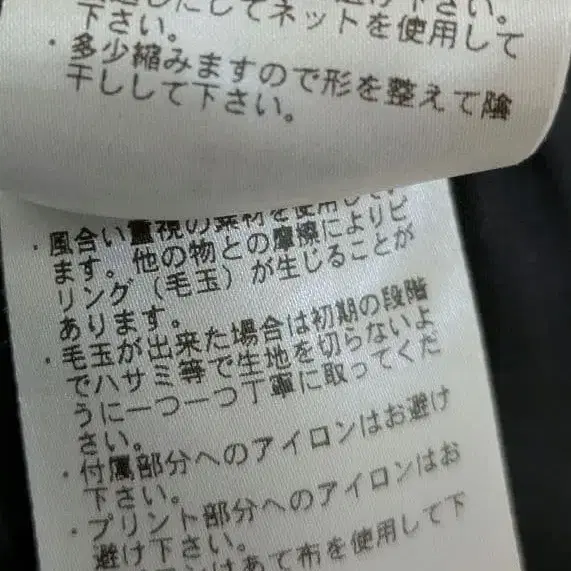 してネットを使用して
下さい。
・多少縮みますので形を整えて陰
干しして下さい。
・風合い重視の素材を使用して
ます。他の物との摩擦によりピ
リング(毛玉)が生じることが
あります。
・毛玉が出来た場合は初期の段階
でハサミ等で生地を切らないよ
うに一つ一つ丁寧に取ってくだ
さい。
・付属部分へのアイロンはお避け
下さい。
・プリント部分へのアイロンはお
避け下さい。
はあて布を使用して下